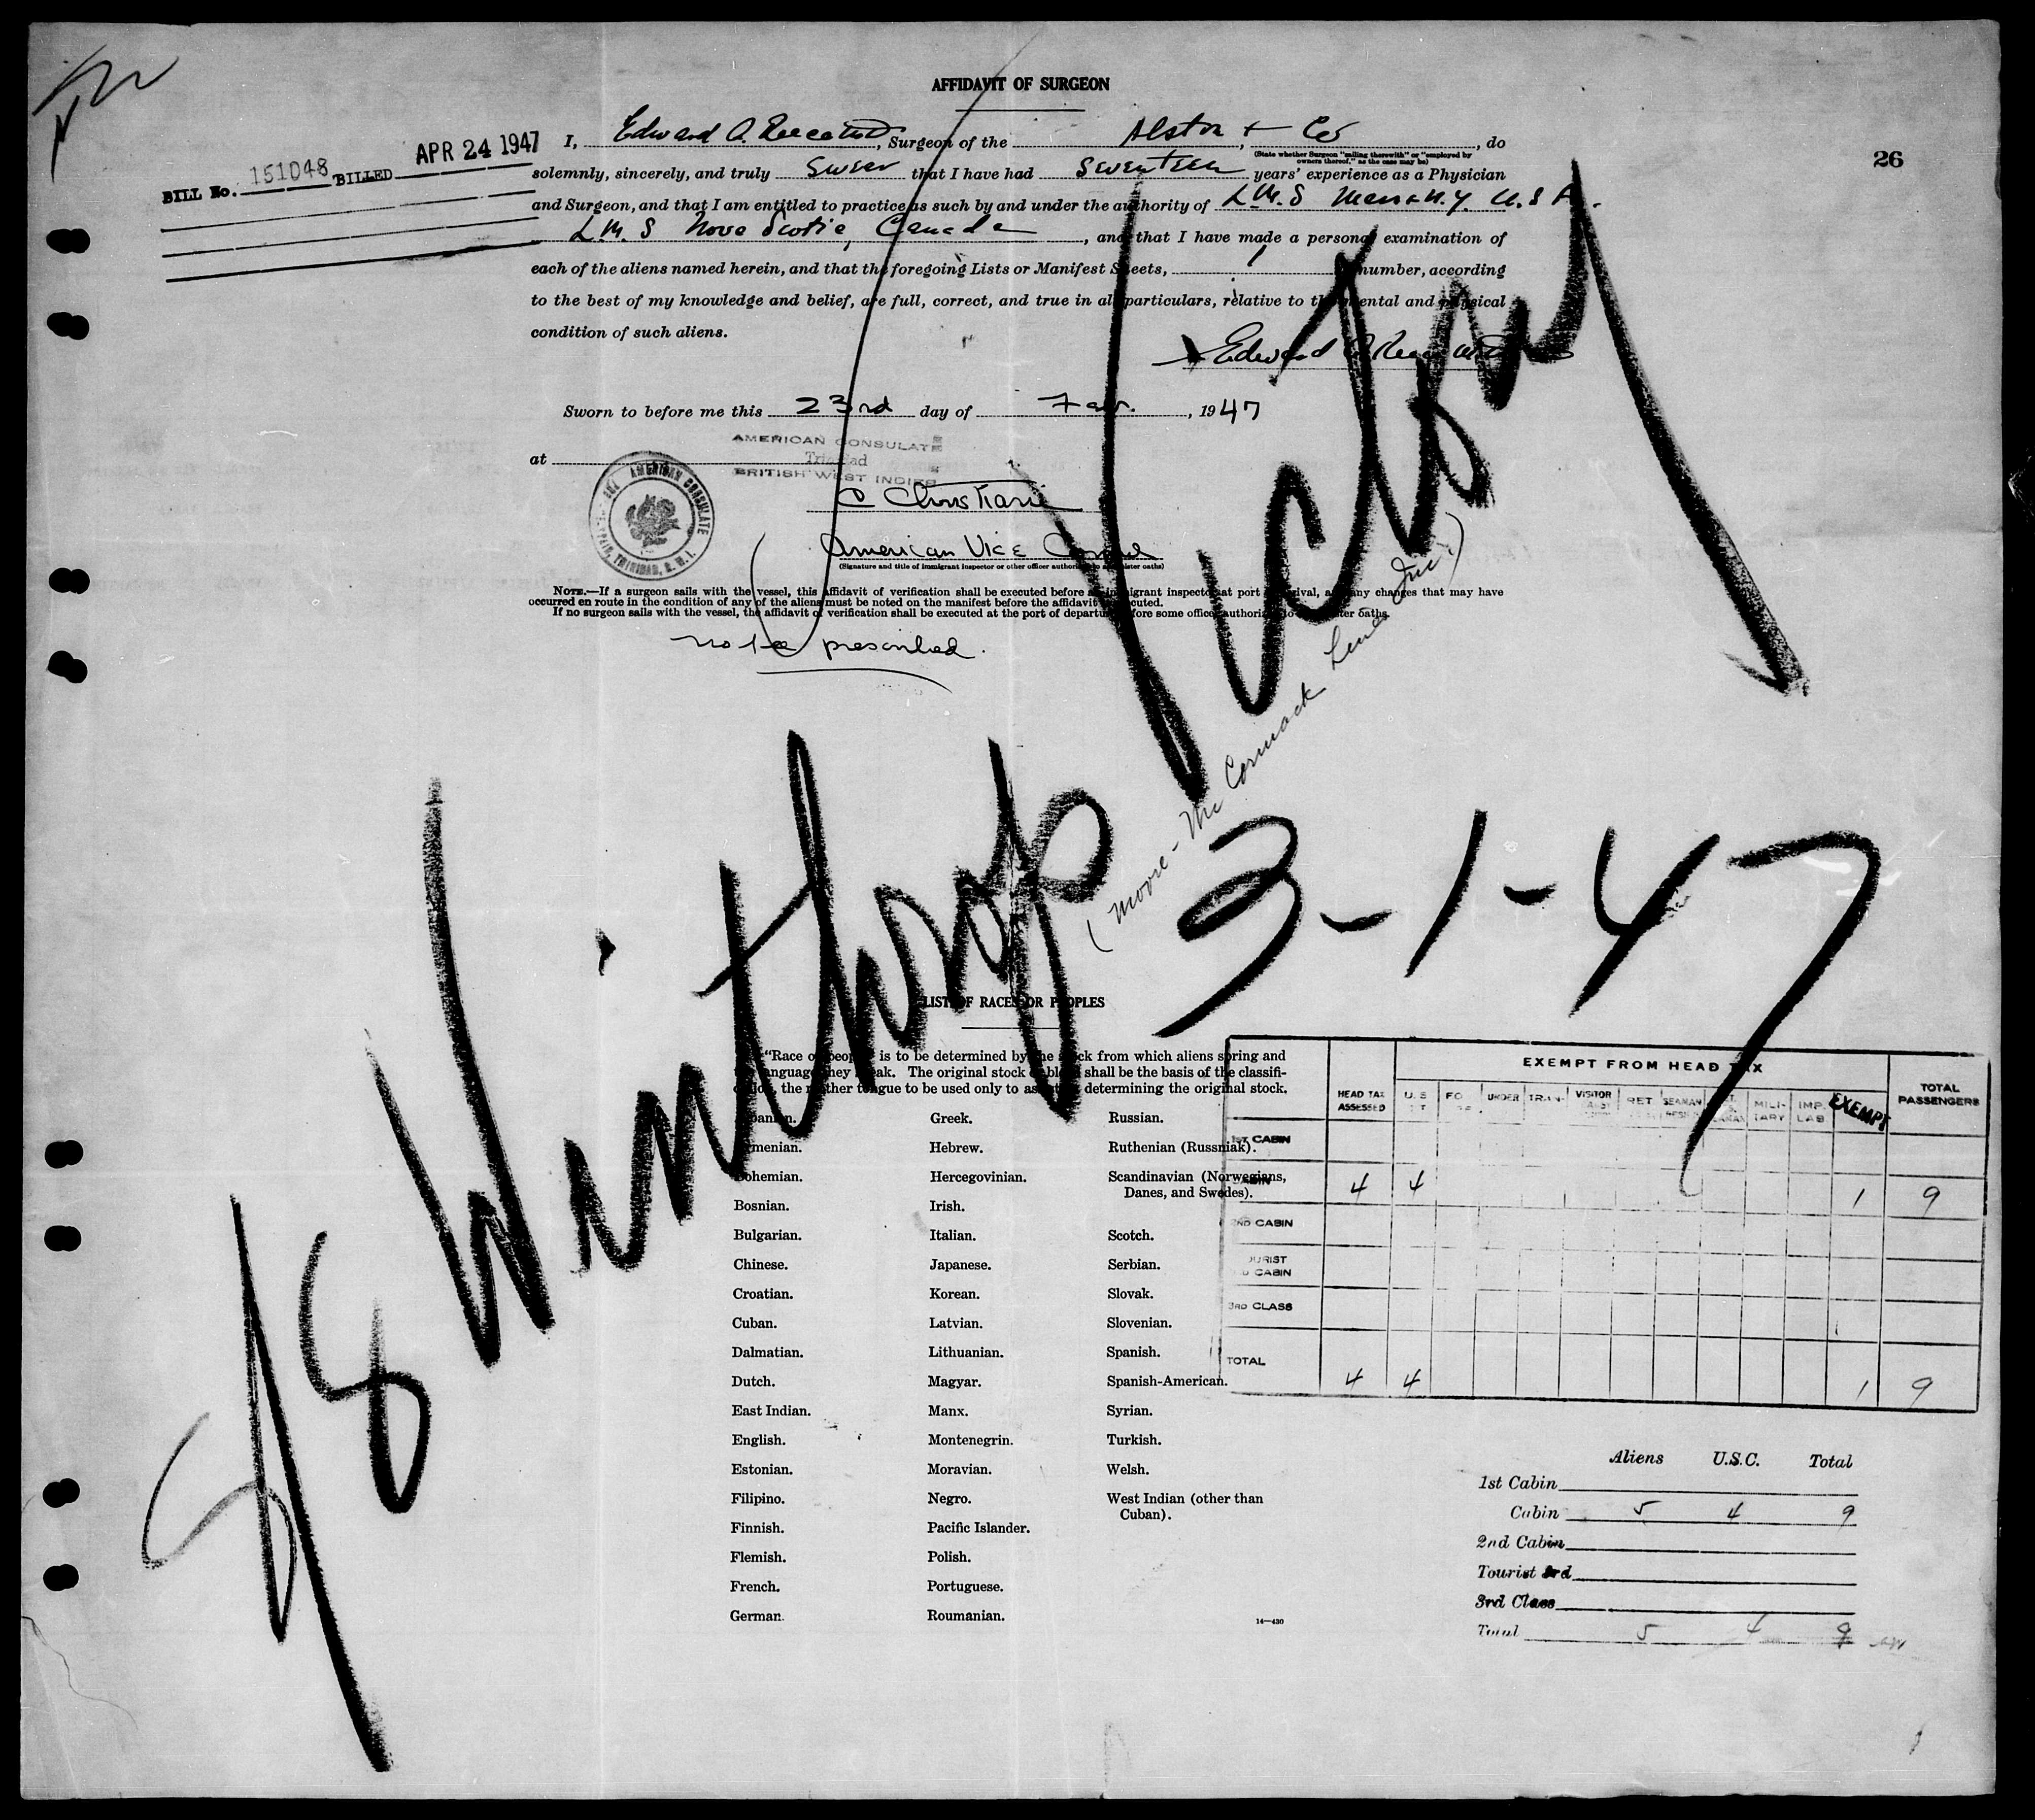 AFFIDAVIT OF SURGEON
26
BILL No. 151048 BILLED APR 24 1947
I, Edward A., Surgeon of the Alston + Co, do
(State whether Surgeon "sailing therewith" or "employed by
owners thereof," as the case may be)
solemnly, sincerely, and truly swear that I have had seventeen years' experience as a Physician
and Surgeon, and that I am entitled to practice as such by and under the authority of L.M.S N.Y. U.S A.
L.M.S Nova Scotia, Canada, and that I have made a personal examination of
each of the aliens named herein, and that the foregoing Lists or Manifest Sheets, 1 number, according
to the best of my knowledge and belief, are full, correct, and true in all particulars, relative to the mental and physical
condition of such aliens.
Edward
Sworn to before me this 23rd day of , 1947
AMERICAN CONSULATE
at Trinidad
BRITISH WEST INDIES
AMERICAN CONSULATE
TRINIDAD, B. W. I.
C Christiani
American Vice Consul
(Signature and title of immigrant inspector or other officer authorized to administer oaths)
NOTE.—If a surgeon sails with the vessel, this affidavit of verification shall be executed before an immigrant inspector at port of arrival, and any changes that may have
occurred en route in the condition of any of the aliens must be noted on the manifest before the affidavit is executed.
If no surgeon sails with the vessel, the affidavit of verification shall be executed at the port of departure before some officer authorized to administer oaths.
no fee prescribed.
SS Winthrop Victory
(Moore-McCormack Lines Inc.)
3-1-47
LIST OF RACES OR PEOPLES
"Race or people" is to be determined by the stock from which aliens spring and
the language they speak. The original stock or blood shall be the basis of the classifi-
cation, the mother tongue to be used only to assist in determining the original stock.
Albanian.
Armenian.
Bohemian.
Bosnian.
Bulgarian.
Chinese.
Croatian.
Cuban.
Dalmatian.
Dutch.
East Indian.
English.
Estonian.
Filipino.
Finnish.
Flemish.
French.
German.
Greek.
Hebrew.
Hercegovinian.
Irish.
Italian.
Japanese.
Korean.
Latvian.
Lithuanian.
Magyar.
Manx.
Montenegrin.
Moravian.
Negro.
Pacific Islander.
Polish.
Portuguese.
Roumanian.
Russian.
Ruthenian (Russniak).
Scandinavian (Norwegians,
Danes, and Swedes).
Scotch.
Serbian.
Slovak.
Slovenian.
Spanish.
Spanish-American.
Syrian.
Turkish.
Welsh.
West Indian (other than
Cuban).
14—430
EXEMPT FROM HEAD TAX
HEAD TAX ASSESSED U.S. UNDER TRAN- VISITOR RET SEAMAN MILI-TARY IMP. LAB EXEMPT TOTAL PASSENGERS
1ST CABIN
CABIN 4 4 1 9
2ND CABIN
TOURIST
CABIN
3RD CLASS
TOTAL 4 4 1 9
Aliens U.S.C. Total
1st Cabin
Cabin 5 4 9
2nd Cabin
Tourist 3rd
3rd Class
Total 5 4 9